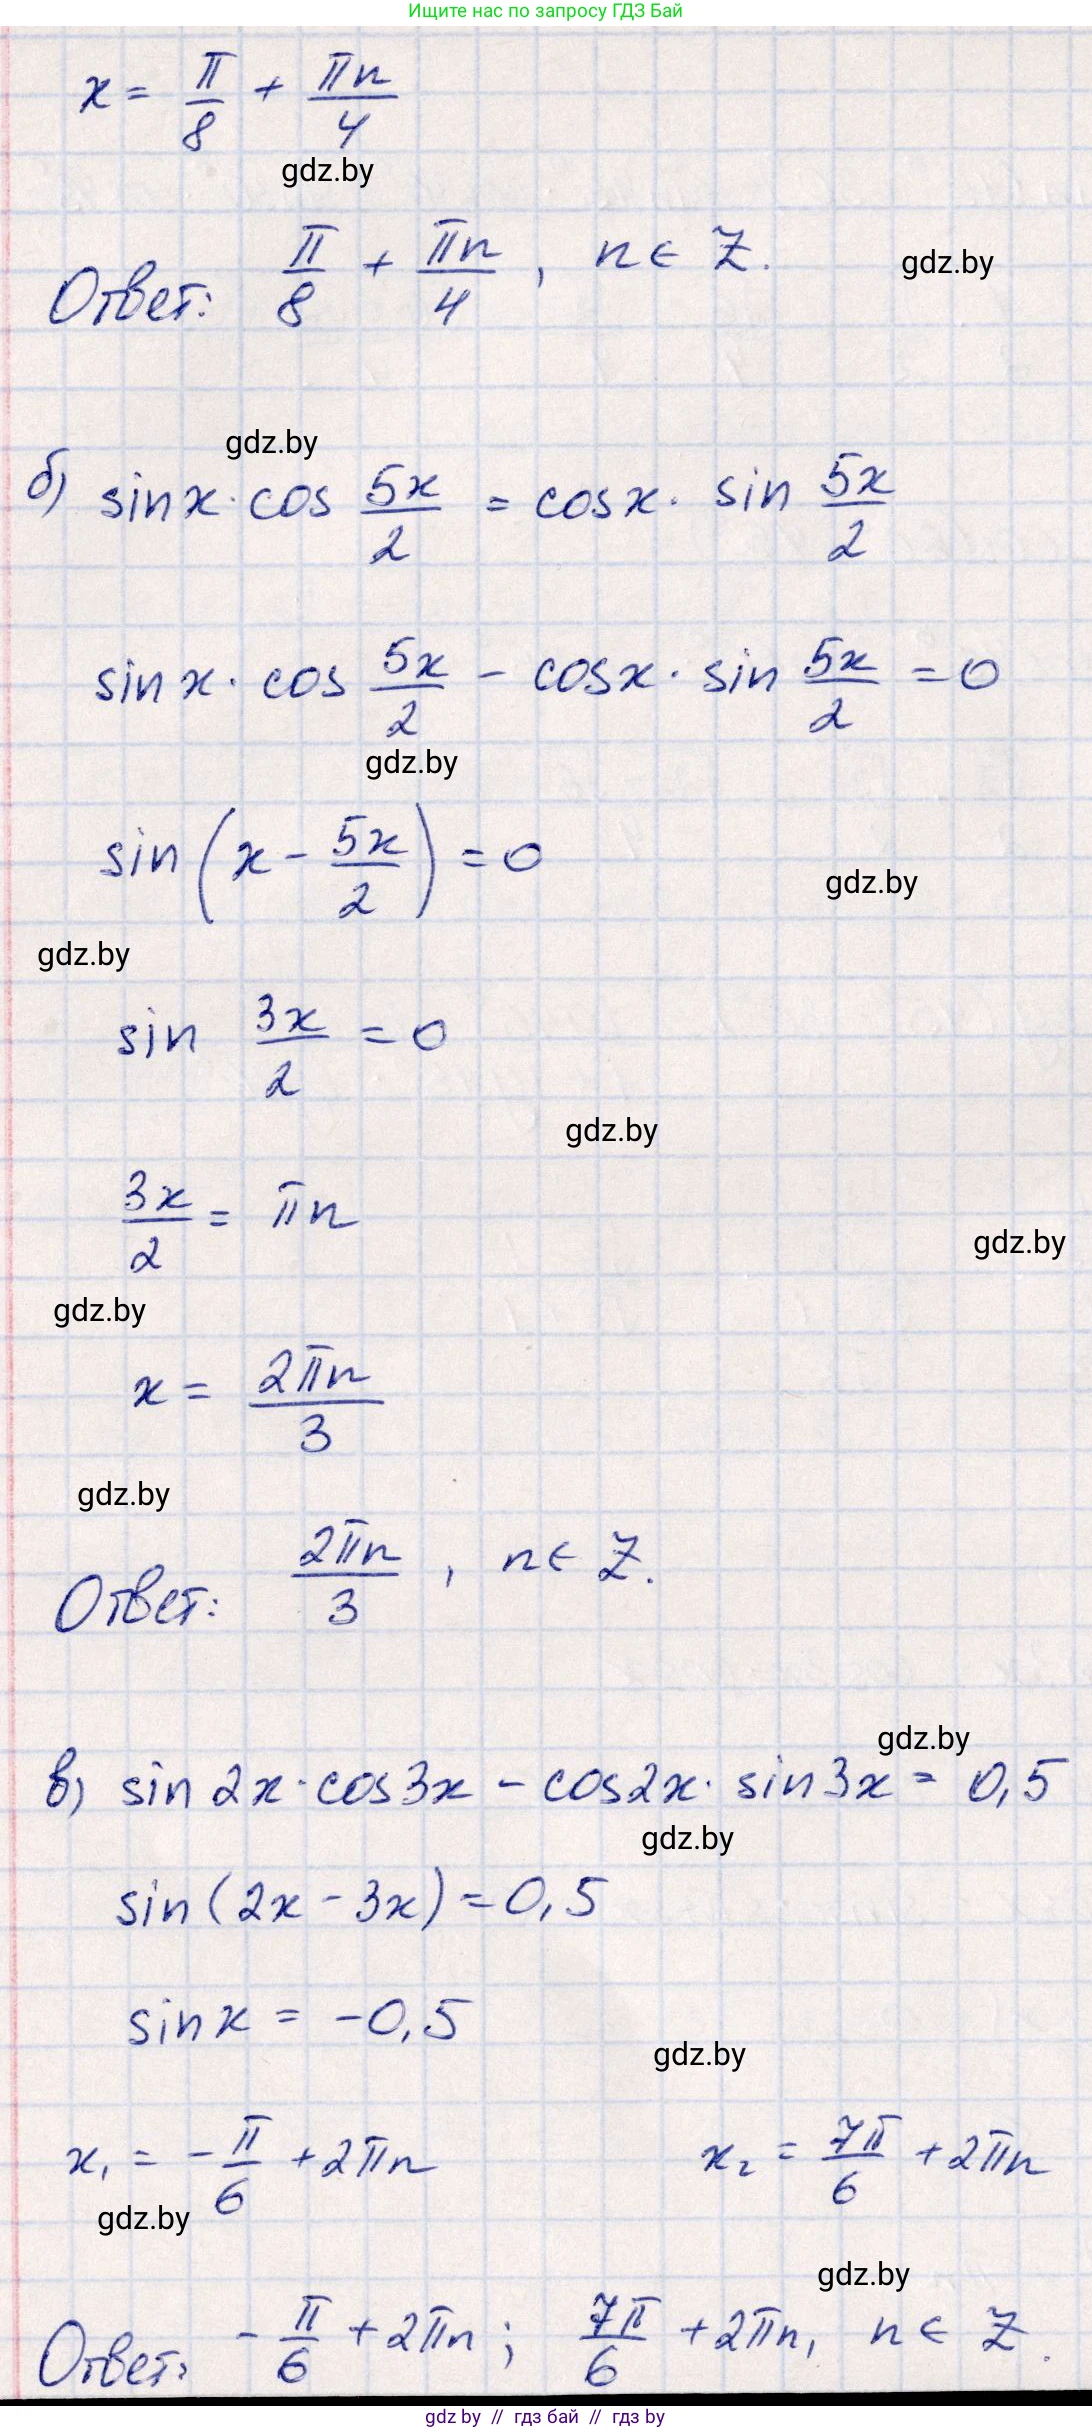 Ищите нас по запросу ГДЗ Бай
x = π/8 + πn/4
gdz.by
Ответ: π/8 + πn/4, n ∈ Z.
gdz.by
gdz.by
б) sin x · cos 5x/2 = cos x · sin 5x/2
sin x · cos 5x/2 - cos x · sin 5x/2 = 0
gdz.by
sin (x - 5x/2) = 0
gdz.by
gdz.by
sin 3x/2 = 0
gdz.by
3x/2 = πn
gdz.by
gdz.by
x = 2πn/3
gdz.by
Ответ: 2πn/3, n ∈ Z.
gdz.by
в) sin 2x · cos 3x - cos 2x · sin 3x = 0,5
gdz.by
sin (2x - 3x) = 0,5
sin x = -0,5
gdz.by
x₁ = -π/6 + 2πn x₂ = 7π/6 + 2πn
gdz.by
gdz.by
Ответ: -π/6 + 2πn; 7π/6 + 2πn, n ∈ Z.
gdz.by // гдз бай // гдз by